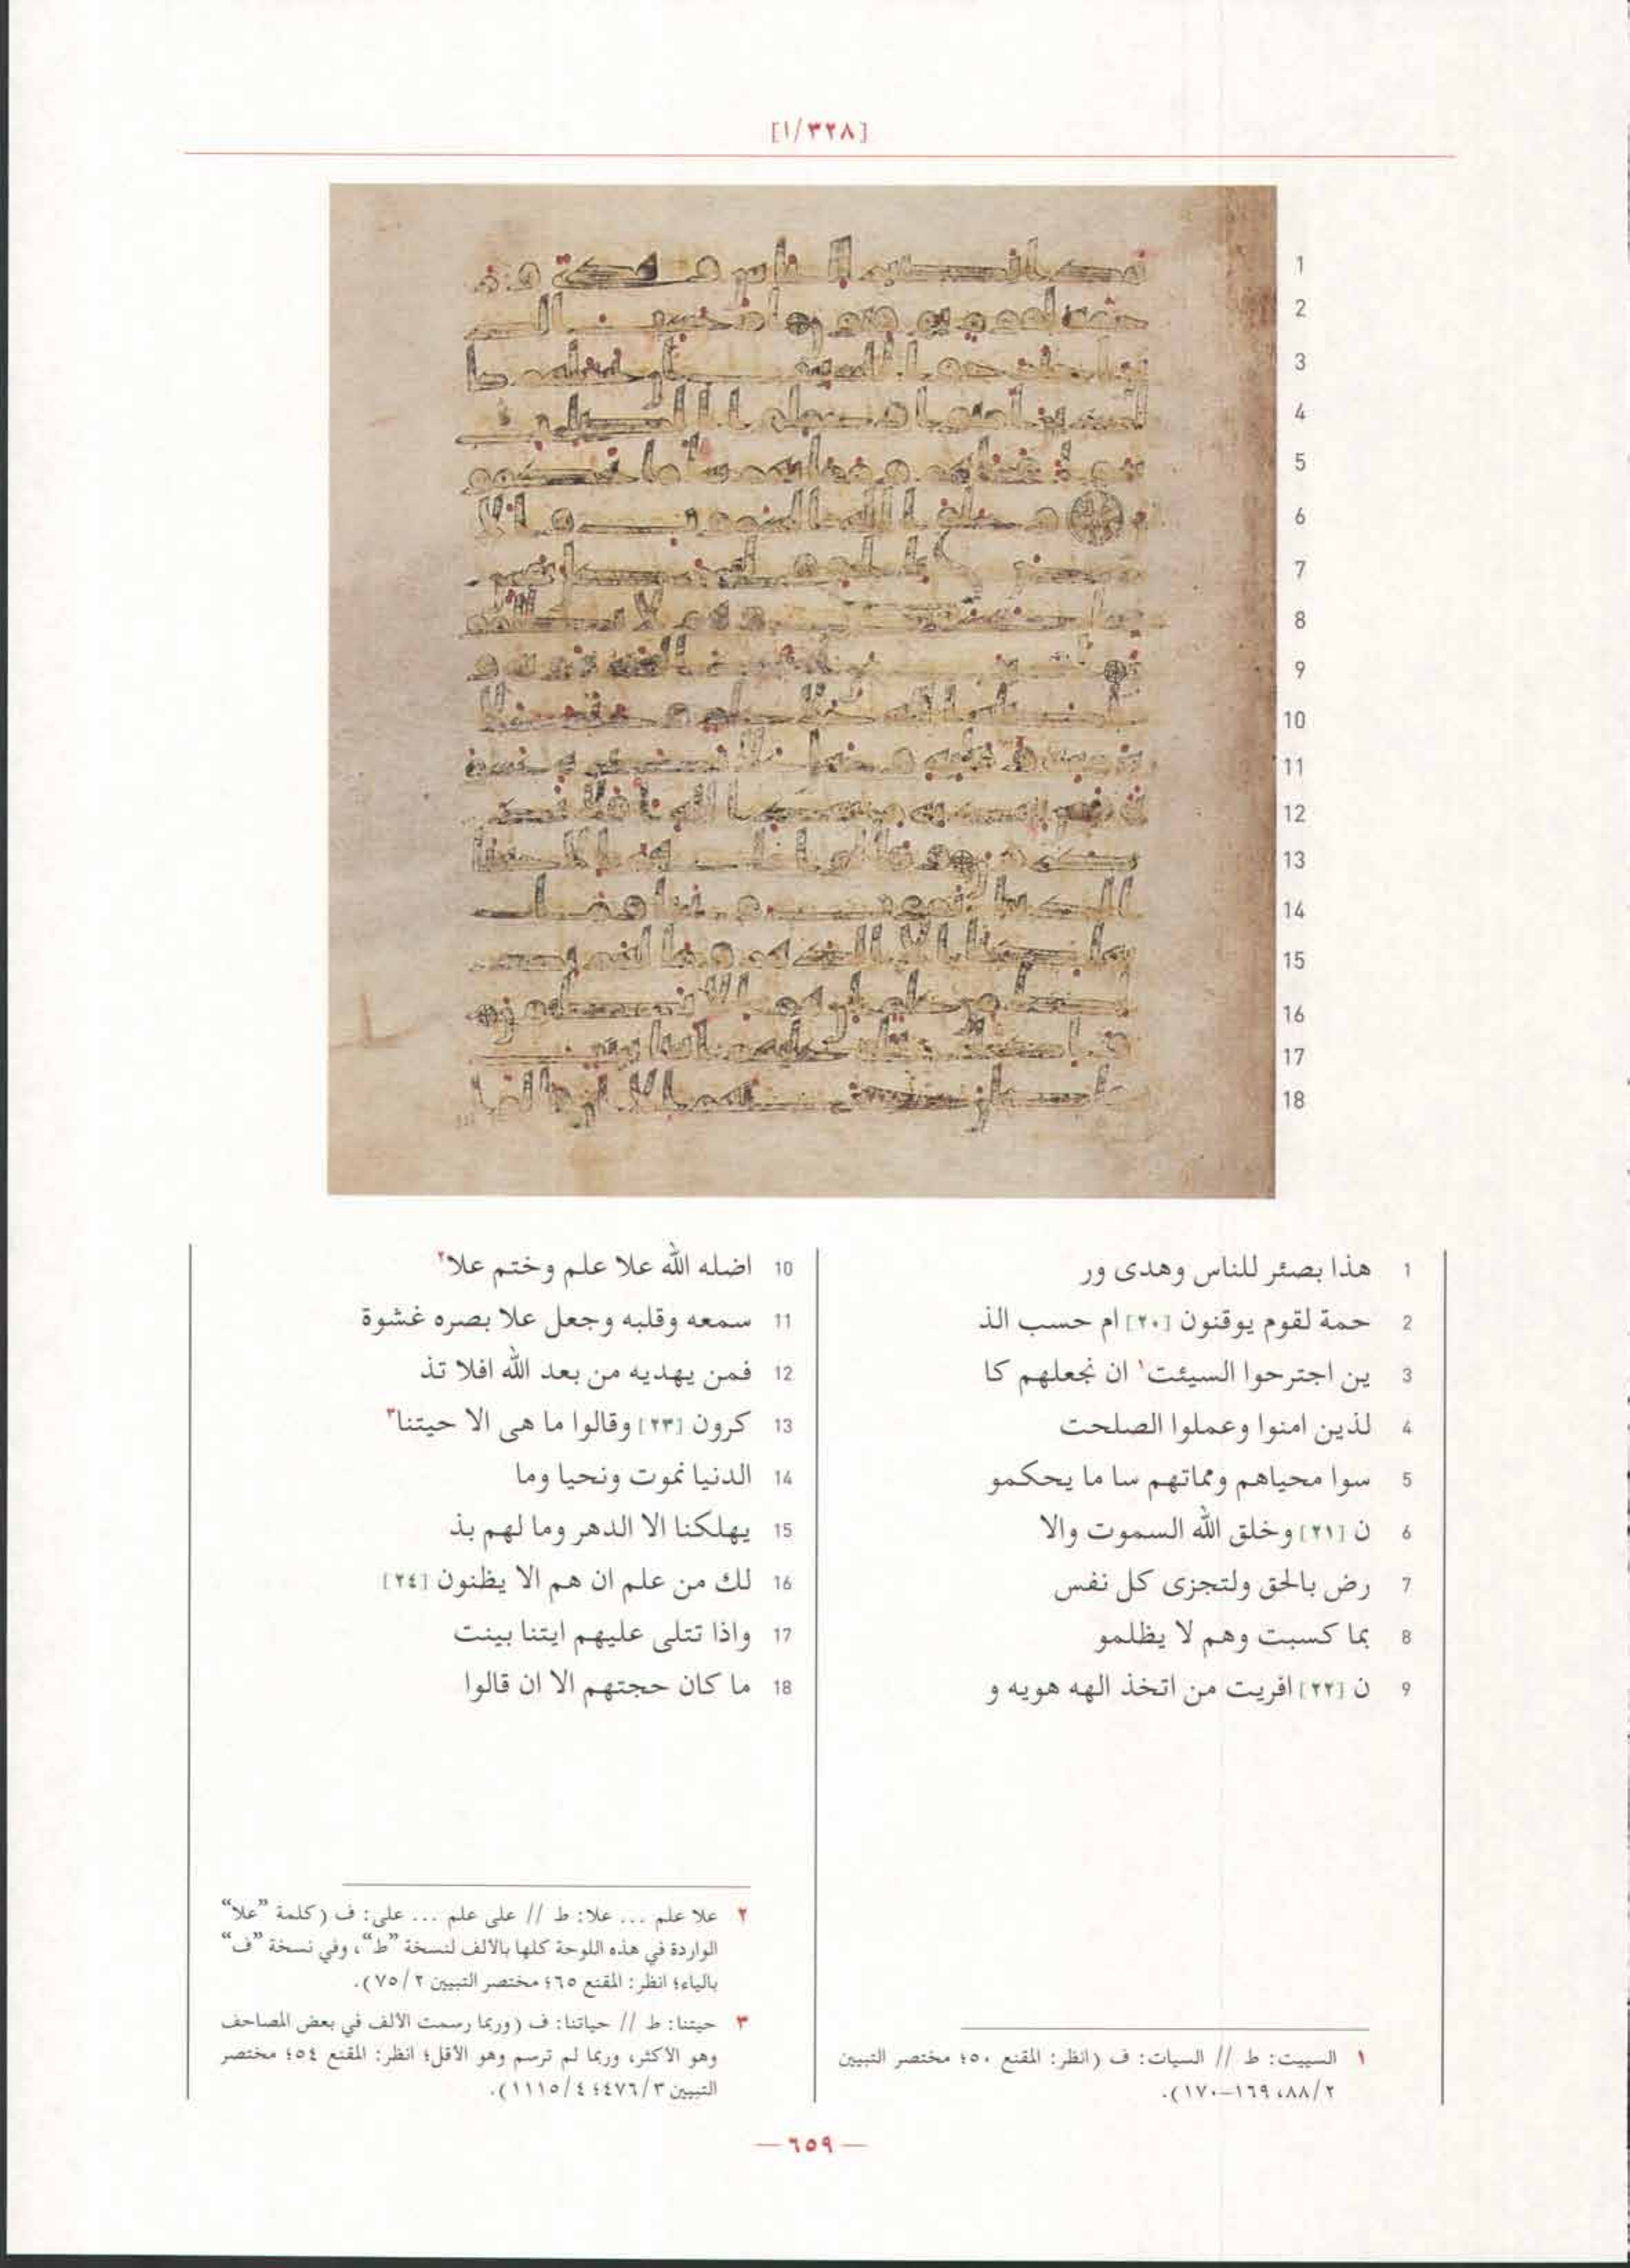 [١/٣٢٨]
1 هذا بصئر للناس وهدى ور
2 حمة لقوم يوقنون [٢٠] ام حسب الذ
3 ين اجترحوا السيئت١ ان نجعلهم كا
4 لذين امنوا وعملوا الصلحت
5 سوا محياهم ومماتهم سا ما يحكمو
6 ن [٢١] وخلق الله السموت والا
7 رض بالحق ولتجزى كل نفس
8 بما كسبت وهم لا يظلمو
9 ن [٢٢] افريت من اتخذ الهه هويه و
١ السييت: ط // السيات: ف (انظر: المقنع ٥٠؛ مختصر التبيين
٢/٨٨، ١٦٩-١٧٠).
10 اضله الله علا علم وختم علا٢
11 سمعه وقلبه وجعل علا بصره غشوة
12 فمن يهديه من بعد الله افلا تذ
13 كرون [٢٣] وقالوا ما هى الا حيتنا٣
14 الدنيا نموت ونحيا وما
15 يهلكنا الا الدهر وما لهم بذ
16 لك من علم ان هم الا يظنون [٢٤]
17 واذا تتلى عليهم ايتنا بينت
18 ما كان حجتهم الا ان قالوا
٢ علا علم ... علا: ط // على علم ... على: ف (كلمة ”علا“
الواردة في هذه اللوحة كلها بالألف لنسخة ”ط“، وفي نسخة ”ف“
بالياء؛ انظر: المقنع ٦٥؛ مختصر التبيين ٢/٧٥).
٣ حيتنا: ط // حياتنا: ف (وربما رسمت الألف في بعض المصاحف
وهو الأكثر، وربما لم ترسم وهو الأقل؛ انظر: المقنع ٥٤؛ مختصر
التبيين ٣/٤٧٦؛ ٤/١١١٥).
— ٦٥٩ —